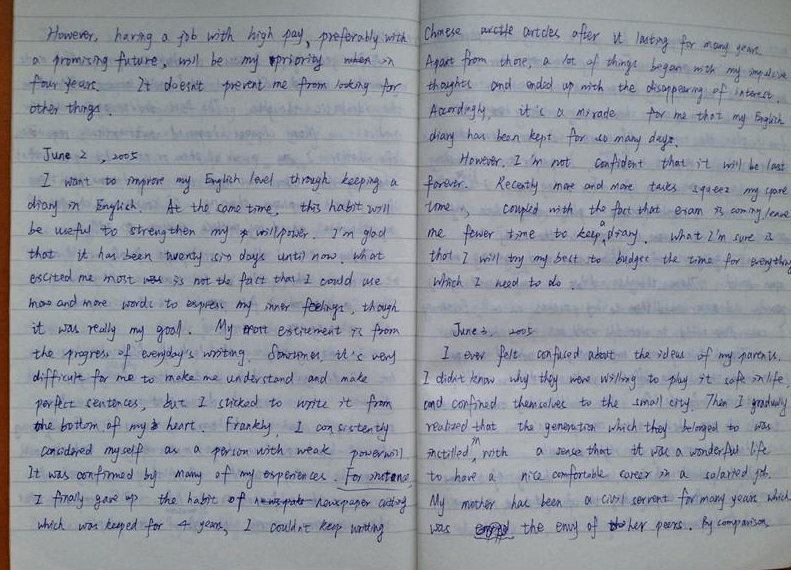 However, having a job with high pay, preferably with
a promising future, will be my priority when in
four years. It doesn't prevent me from looking for
other things.
June 2, 2005
I want to improve my English level through keeping a
diary in English. At the same time, this habit will
be useful to strengthen my willpower. I'm glad
that it has been twenty six days until now. What
excited me most was is not the fact that I could use
more and more words to express my inner feelings, though
it was really my goal. My most excitement is from
the progress of everyday's writing. Sometimes, it's very
difficult for me to make me understand and make
perfect sentences, but I sticked to write it from
the bottom of my heart. Frankly, I consistently
considered myself as a person with weak powerwill.
It was confirmed by many of my experiences. For instance,
I finally gave up the habit of newspape newspaper cutting
which was keeped for 4 years, I couldn't keep writing
Chinese article articles after it lasting for many years.
Apart from those, a lot of things began with my impulsive
thoughts and ended up with the disappearing of interest.
Accordingly, it is a miracle for me that my English
diary has been kept for so many days.
However, I'm not confident that it will be last
forever. Recently more and more tasks squeeze my spare
time, coupled with the fact that exam is coming, leave
me fewer time to keep diary. What I'm sure is
that I will try my best to budget the time for everything
which I need to do.
June 3, 2005
I ever felt confused about the ideas of my parents.
I didn't know why they were willing to play it safe in life,
and confined themselves to the small city. Then I gradually
realised that the generation which they belonged to was
instilled in with a sense that it was a wonderful life
to have a nice comfortable career in a salaried job.
My mother has been a civil servent for many years which
was the envy of her peers. By comparison